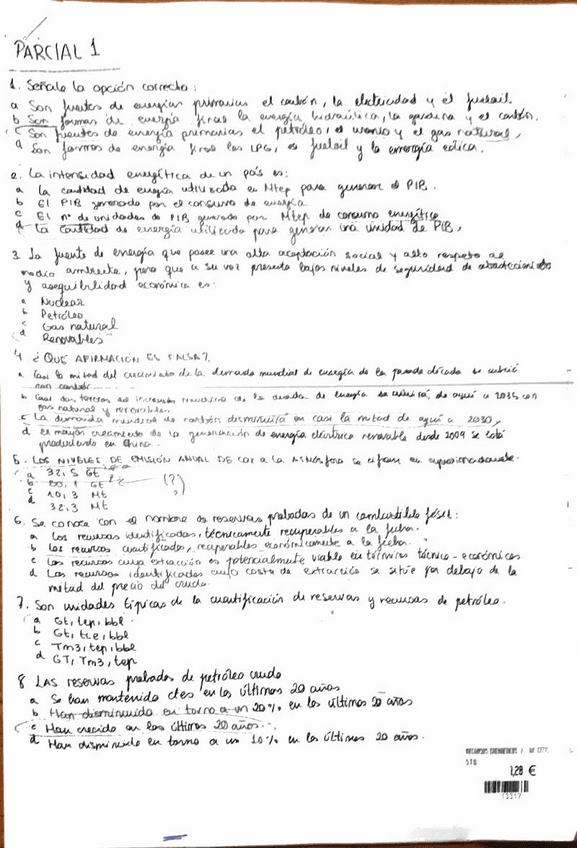 PARCIAL 1
1. Señale la opción correcta:
a Son fuentes de energías primarias el carbón, la electricidad y el fueloil.
b Son formas de energía final la energía hidráulica, la gasolina y el carbón.
c Son fuentes de energía primarias el petróleo, el uranio y el gas natural.
d Son formas de energía final los LPG, el fueloil y la energía eólica.
2. La intensidad energética de un país es:
a La cantidad de energía utilizada en Mtep para generar el PIB.
b El PIB generado por el consumo de energía
c El nº de unidades de PIB generado por Mtep de consumo energético
d La cantidad de energía utilizada para generar una unidad de PIB.
3. La fuente de energía que posee una alta aceptación social y alto respeto al
medio ambiente, pero que a su vez presenta bajos niveles de seguridad de abastecimiento
y asequibilidad económica es:
a Nuclear
b Petróleo
c Gas natural
d Renovables
4 ¿QUÉ AFIRMACIÓN ES FALSA?
a Casi la mitad del crecimiento de la demanda mundial de energía de la pasada década se cubrió
con carbón
b Casi dos tercios del incremento de la de energía se cubrirá, de aquí a 2035 con
gas natural y renovables
c La demanda mundial de carbón disminuirá en casi la mitad de aquí a 2030,
d El mayor crecimiento de la generación de energía eléctrica renovable desde 2009 se está
produciendo en China
5. LOS NIVELES DE EMISIÓN ANUAL DE CO2 A LA ATMÓSFERA se cifran en aproximadamente.
a 32,5 Gt
b Gt (?)
c 10,3 Mt
d 32,3 Mt
6. Se conoce con el nombre de reservas probadas de un combustible fósil:
a Los recursos identificados, técnicamente recuperables a la fecha.
b Los recursos cuantificados, recuperables económicamente a la fecha.
c Los recursos cuya extracción es potencialmente viable en términos técnico-económicos
d Los recursos identificados cuyo coste de extracción se sitúe por debajo de la
mitad del precio del crudo.
7. Son unidades típicas de la cuantificación de reservas y recursos de petróleo.
a Gt, tep, bbl.
b Gt, tce, bbl
c Tm3, tep, bbl
d GT, Tm3, tep
8 LAS reservas probadas de petróleo crudo
a Se han mantenido ctes en los últimos 20 años
b Han disminuido en torno a un 20% en los últimos 20 años
c Han crecido en los últimos 20 años.
d Han disminuido en torno a un 10% en los últimos 20 años.
1,28 €